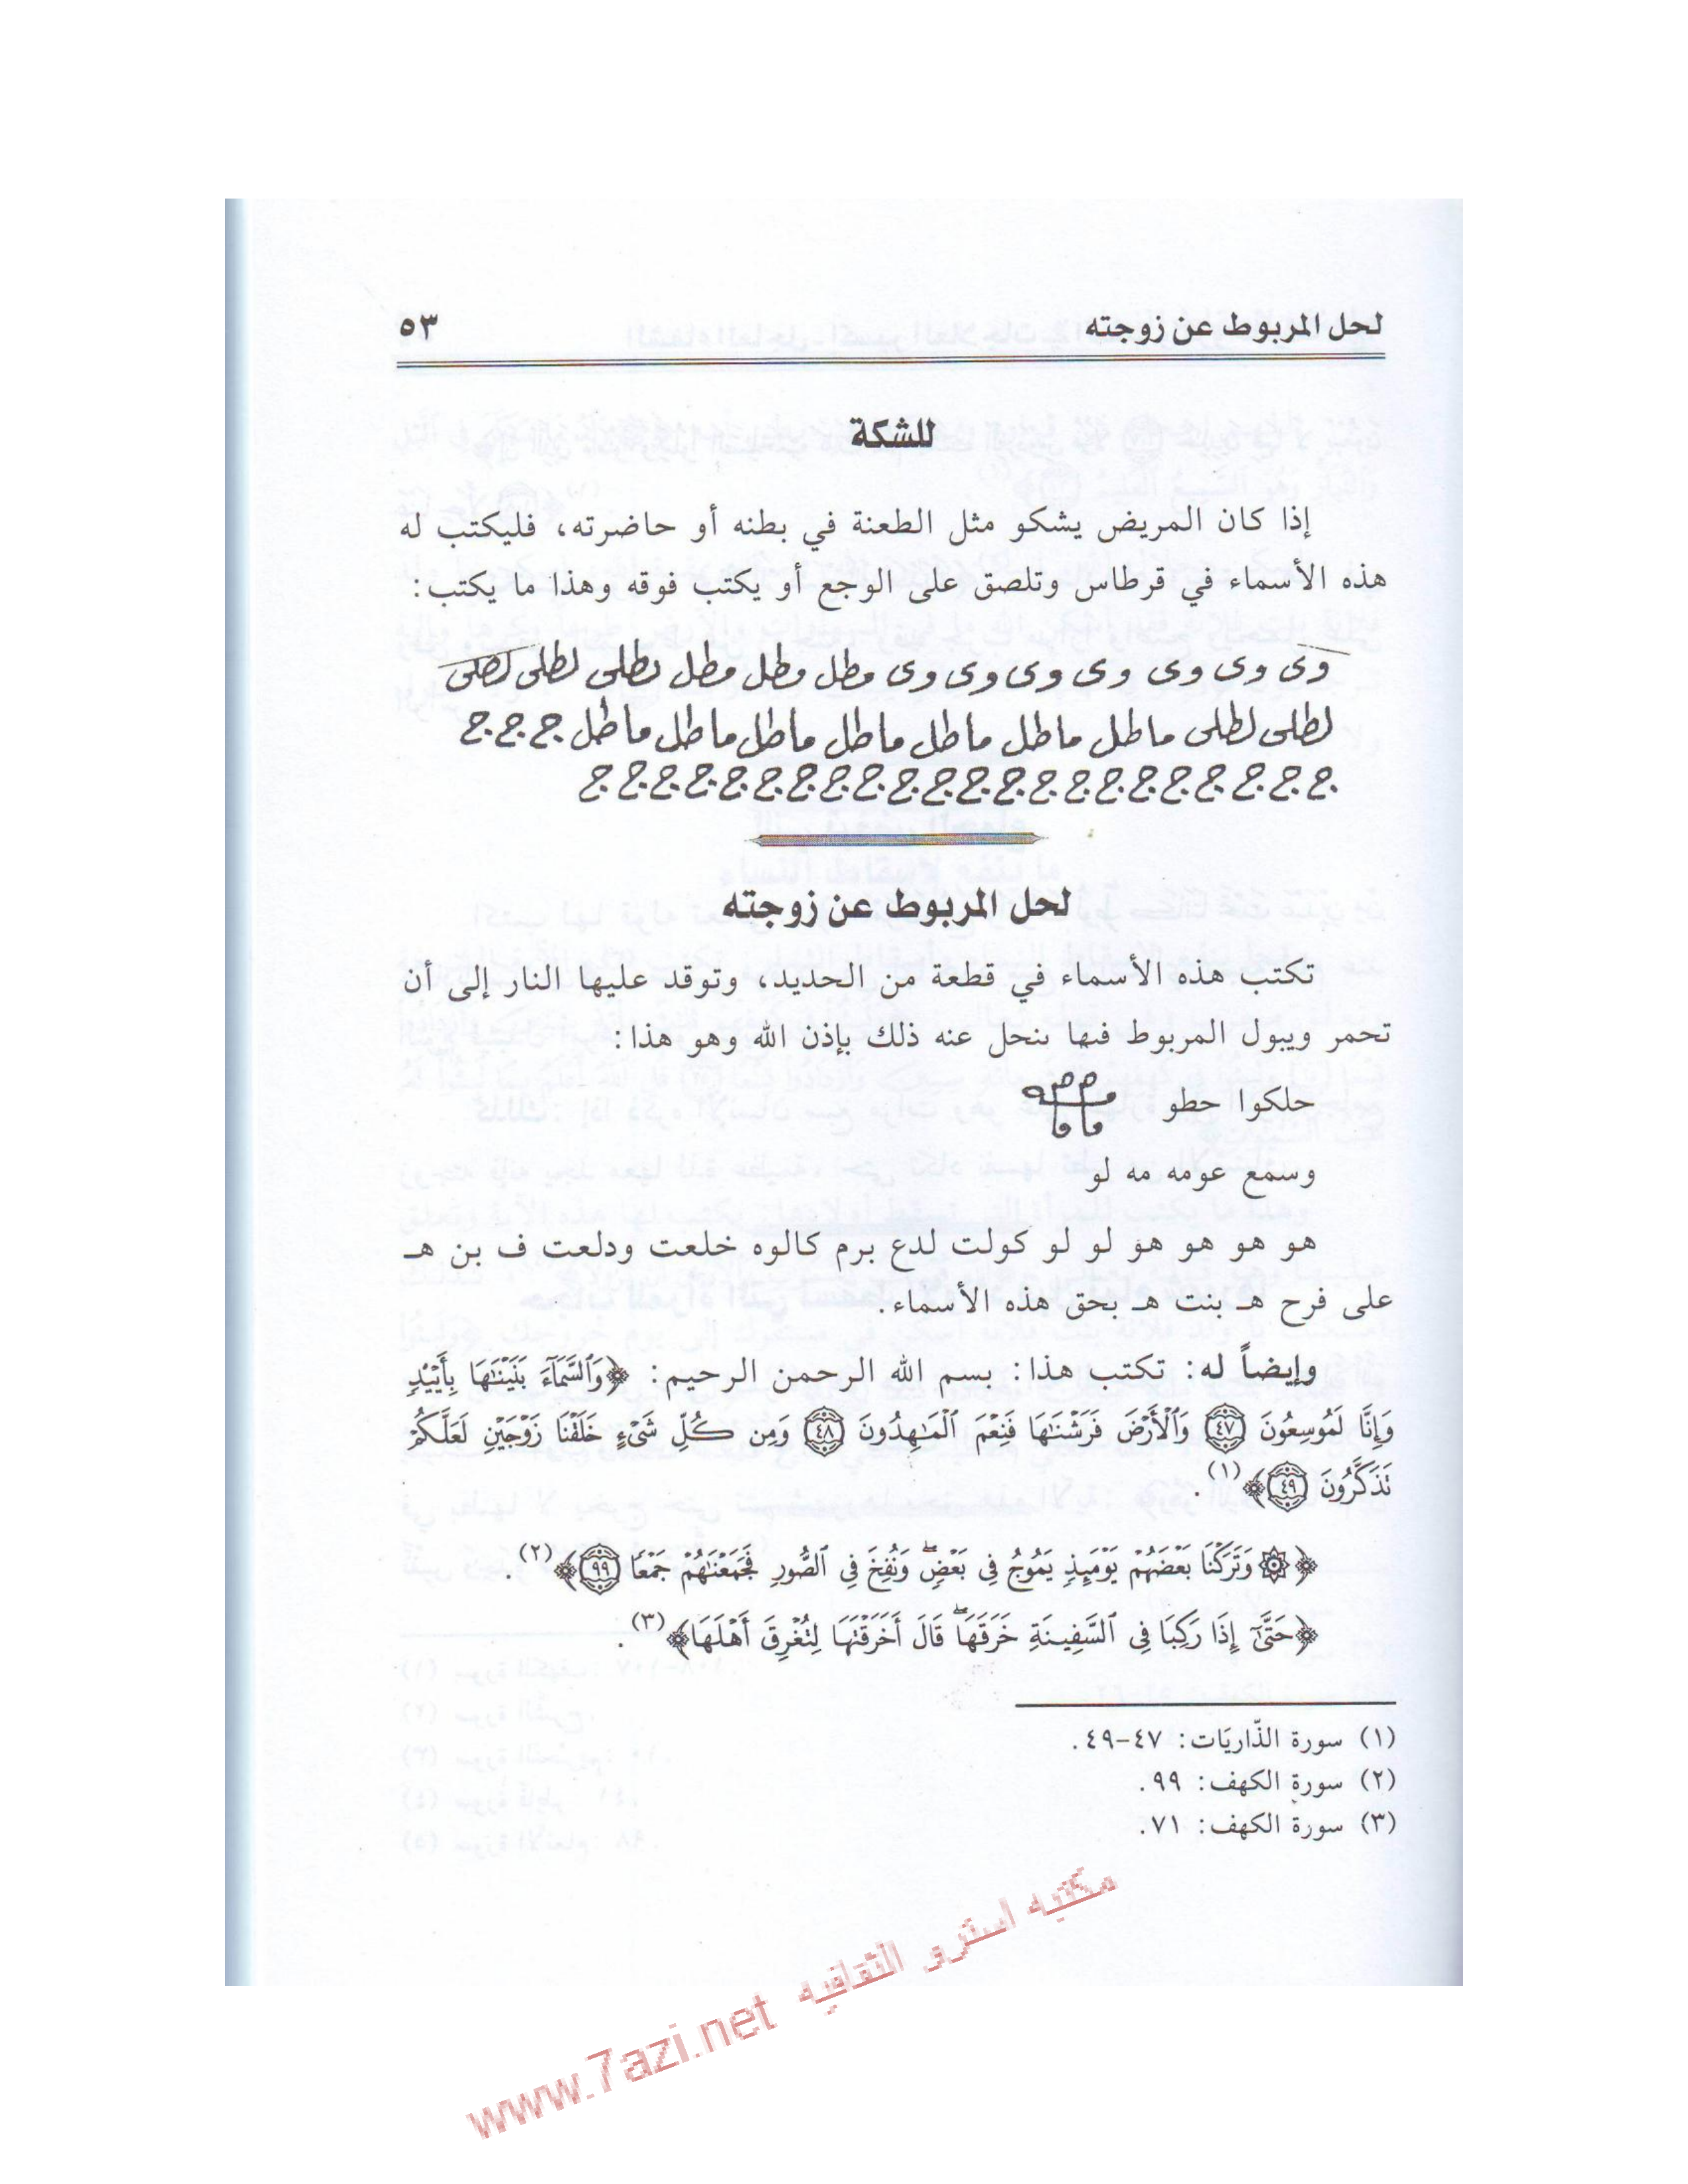 لحل المربوط عن زوجته ٥٣
للشكة
إذا كان المريض يشكو مثل الطعنة في بطنه أو حاضرته، فليكتب له
هذه الأسماء في قرطاس وتلصق على الوجع أو يكتب فوقه وهذا ما يكتب:
وى وى وى وى وى وى وى مطل مطل مطل لطلى لطلى لطلى
لطلى لطلى ماطل ماطل ماطل ماطل ماطل ماطل ماطل ج ج ج
ج ج ج ج ج ج ج ج ج ج ج ج ج ج ج ج ج ج ج ج ج ج
لحل المربوط عن زوجته
تكتب هذه الأسماء في قطعة من الحديد، وتوقد عليها النار إلى أن
تحمر ويبول المربوط فيها ينحل عنه ذلك بإذن الله وهو هذا:
حلكوا حطو
وسمع عومه مه لو
هو هو هو هو لو لو كولت لدع برم كالوه خلعت ودلعت ف بن هـ
على فرح هـ بنت هـ بحق هذه الأسماء.
وإيضاً له: تكتب هذا: بسم الله الرحمن الرحيم: ﴿وَٱلسَّمَآءَ بَنَيْنَٰهَا بِأَيْي۟دٍ
وَإِنَّا لَمُوسِعُونَ ٤٧ وَٱلْأَرْضَ فَرَشْنَٰهَا فَنِعْمَ ٱلْمَٰهِدُونَ ٤٨ وَمِن كُلِّ شَىْءٍ خَلَقْنَا زَوْجَيْنِ لَعَلَّكُمْ
تَذَكَّرُونَ ٤٩﴾(١).
﴿۞ وَتَرَكْنَا بَعْضَهُمْ يَوْمَئِذٍ يَمُوجُ فِى بَعْضٍ ۖ وَنُفِخَ فِى ٱلصُّورِ فَجَمَعْنَٰهُمْ جَمْعًا ٩٩﴾(٢).
﴿حَتَّىٰٓ إِذَا رَكِبَا فِى ٱلسَّفِينَةِ خَرَقَهَا ۖ قَالَ أَخَرَقْتَهَا لِتُغْرِقَ أَهْلَهَا﴾(٣).
(١) سورة الذّاريَات: ٤٧-٤٩.
(٢) سورة الكهف: ٩٩.
(٣) سورة الكهف: ٧١.
www.7azi.net مكتبه استرو الثقافيه